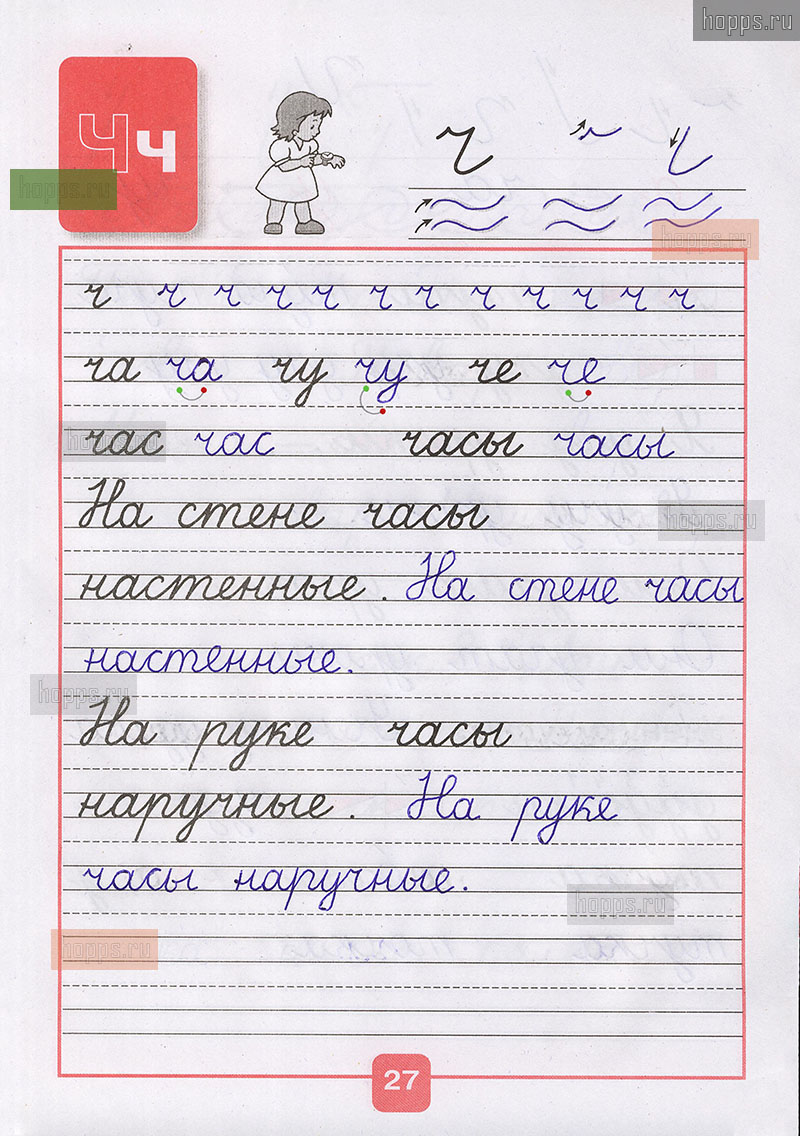 hopps.ru
Ч ч
hopps.ru
ч
hopps.ru
ч ч ч ч ч ч ч ч ч ч ч ч
ча ча чу чу че че
час час часы часы
hopps.ru
На стене часы
hopps.ru
настенные. На стене часы
настенные.
hopps.ru
На руке часы
наручные. На руке
часы наручные.
hopps.ru
hopps.ru
27